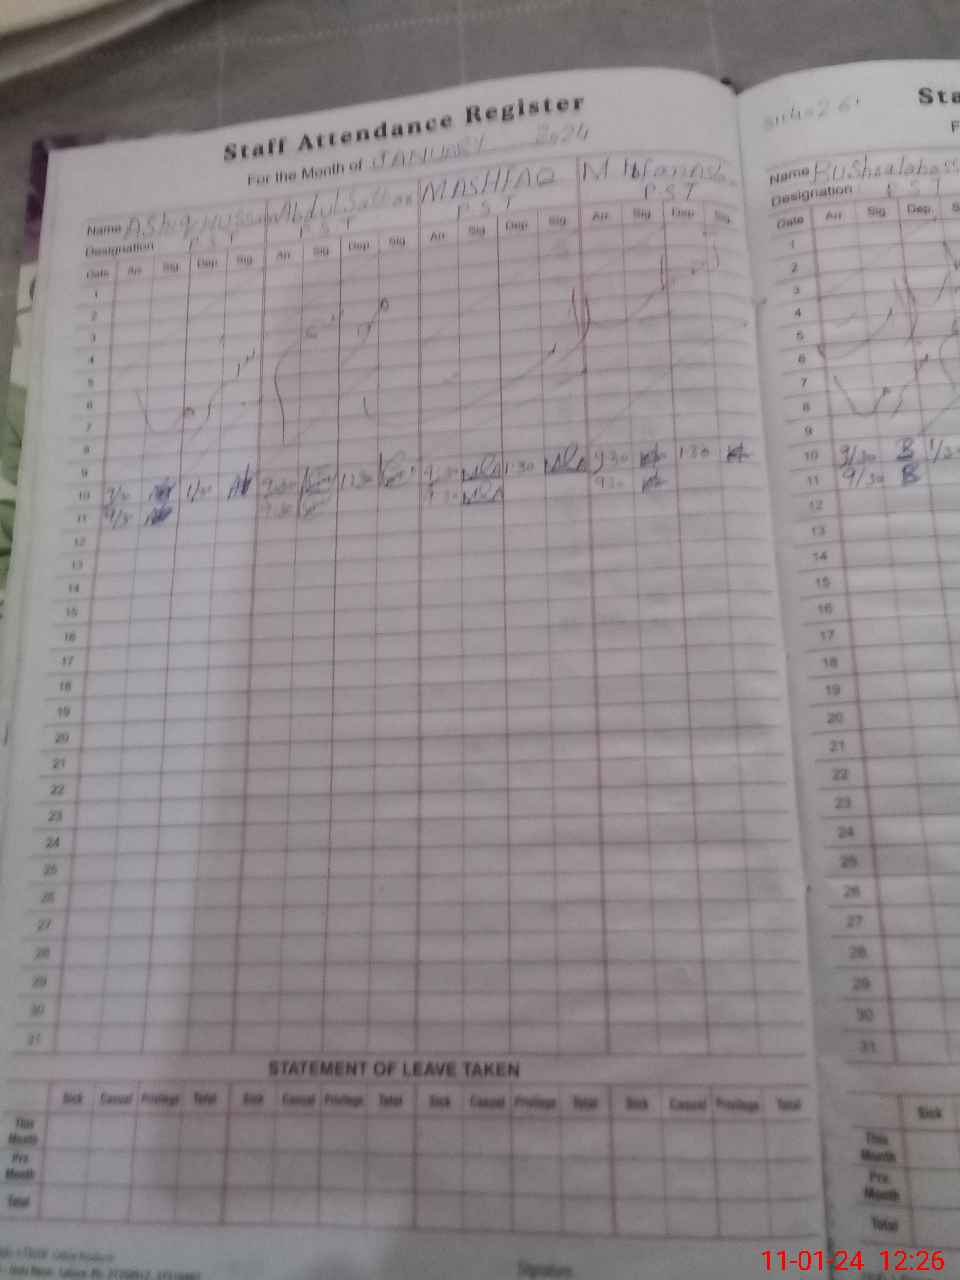 Staff Attendance Register Sta
For the Month of JANUARY 2024 F
Name Ashiq Hussain Abdul Sattar MASHFAQ M Name Bushra
Designation P.S.T P.S.T P.S.T P.S.T Designation P.S.T
Date Arr Sig Dep Sig Arr Sig Dep Sig Arr Sig Dep Sig Arr Sig Dep Sig Date Arr Sig Dep S
1 1
2 2
3 3
4 4
5 5
6 6
7 7
8 8
9 9
10 9/30 1/30 9:30 1:30 9:30 1:30 9:30 1:30 10 9/30 B 1/30
11 9/30 9:30 9:30 9:30 11 9/30 B
12 12
13 13
14 14
15 15
16 16
17 17
18 18
19 19
20 20
21 21
22 22
23 23
24 24
25 25
26 26
27 27
28 28
29 29
30 30
31 31
STATEMENT OF LEAVE TAKEN
Sick Casual Privilege Total Sick Casual Privilege Total Sick Casual Privilege Total Sick Casual Privilege Total Sick
This Month This Month
Pre. Month Pre. Month
Total Total
Signature
11-01-24 12:26